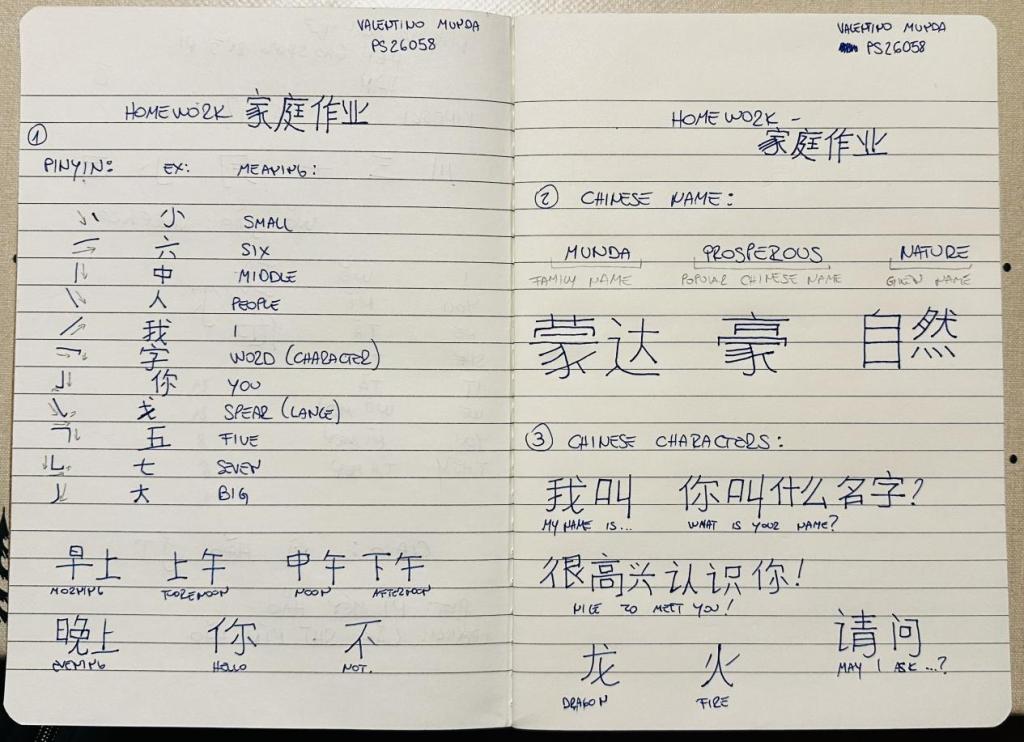 VALENTINO MUNDA
PS26058
HOMEWORK 家庭作业
①
PINYIN: EX: MEANING:
小 SMALL
六 SIX
中 MIDDLE
人 PEOPLE
我 I
字 WORD (CHARACTER)
你 YOU
戈 SPEAR (LANCE)
五 FIVE
七 SEVEN
大 BIG
早上 上午 中午 下午
MORNING FORENOON NOON AFTERNOON
晚上 你 不
EVENING HELLO NOT.
VALENTINO MUNDA
PS26058
HOMEWORK -
家庭作业
② CHINESE NAME:
MUNDA PROSPEROUS NATURE
FAMILY NAME POPULAR CHINESE NAME GIVEN NAME
蒙达 豪 自然
③ CHINESE CHARACTERS:
我叫 你叫什么名字?
MY NAME IS... WHAT IS YOUR NAME?
很高兴认识你!
NICE TO MEET YOU!
请问
MAY I ASK ...?
龙 火
DRAGON FIRE